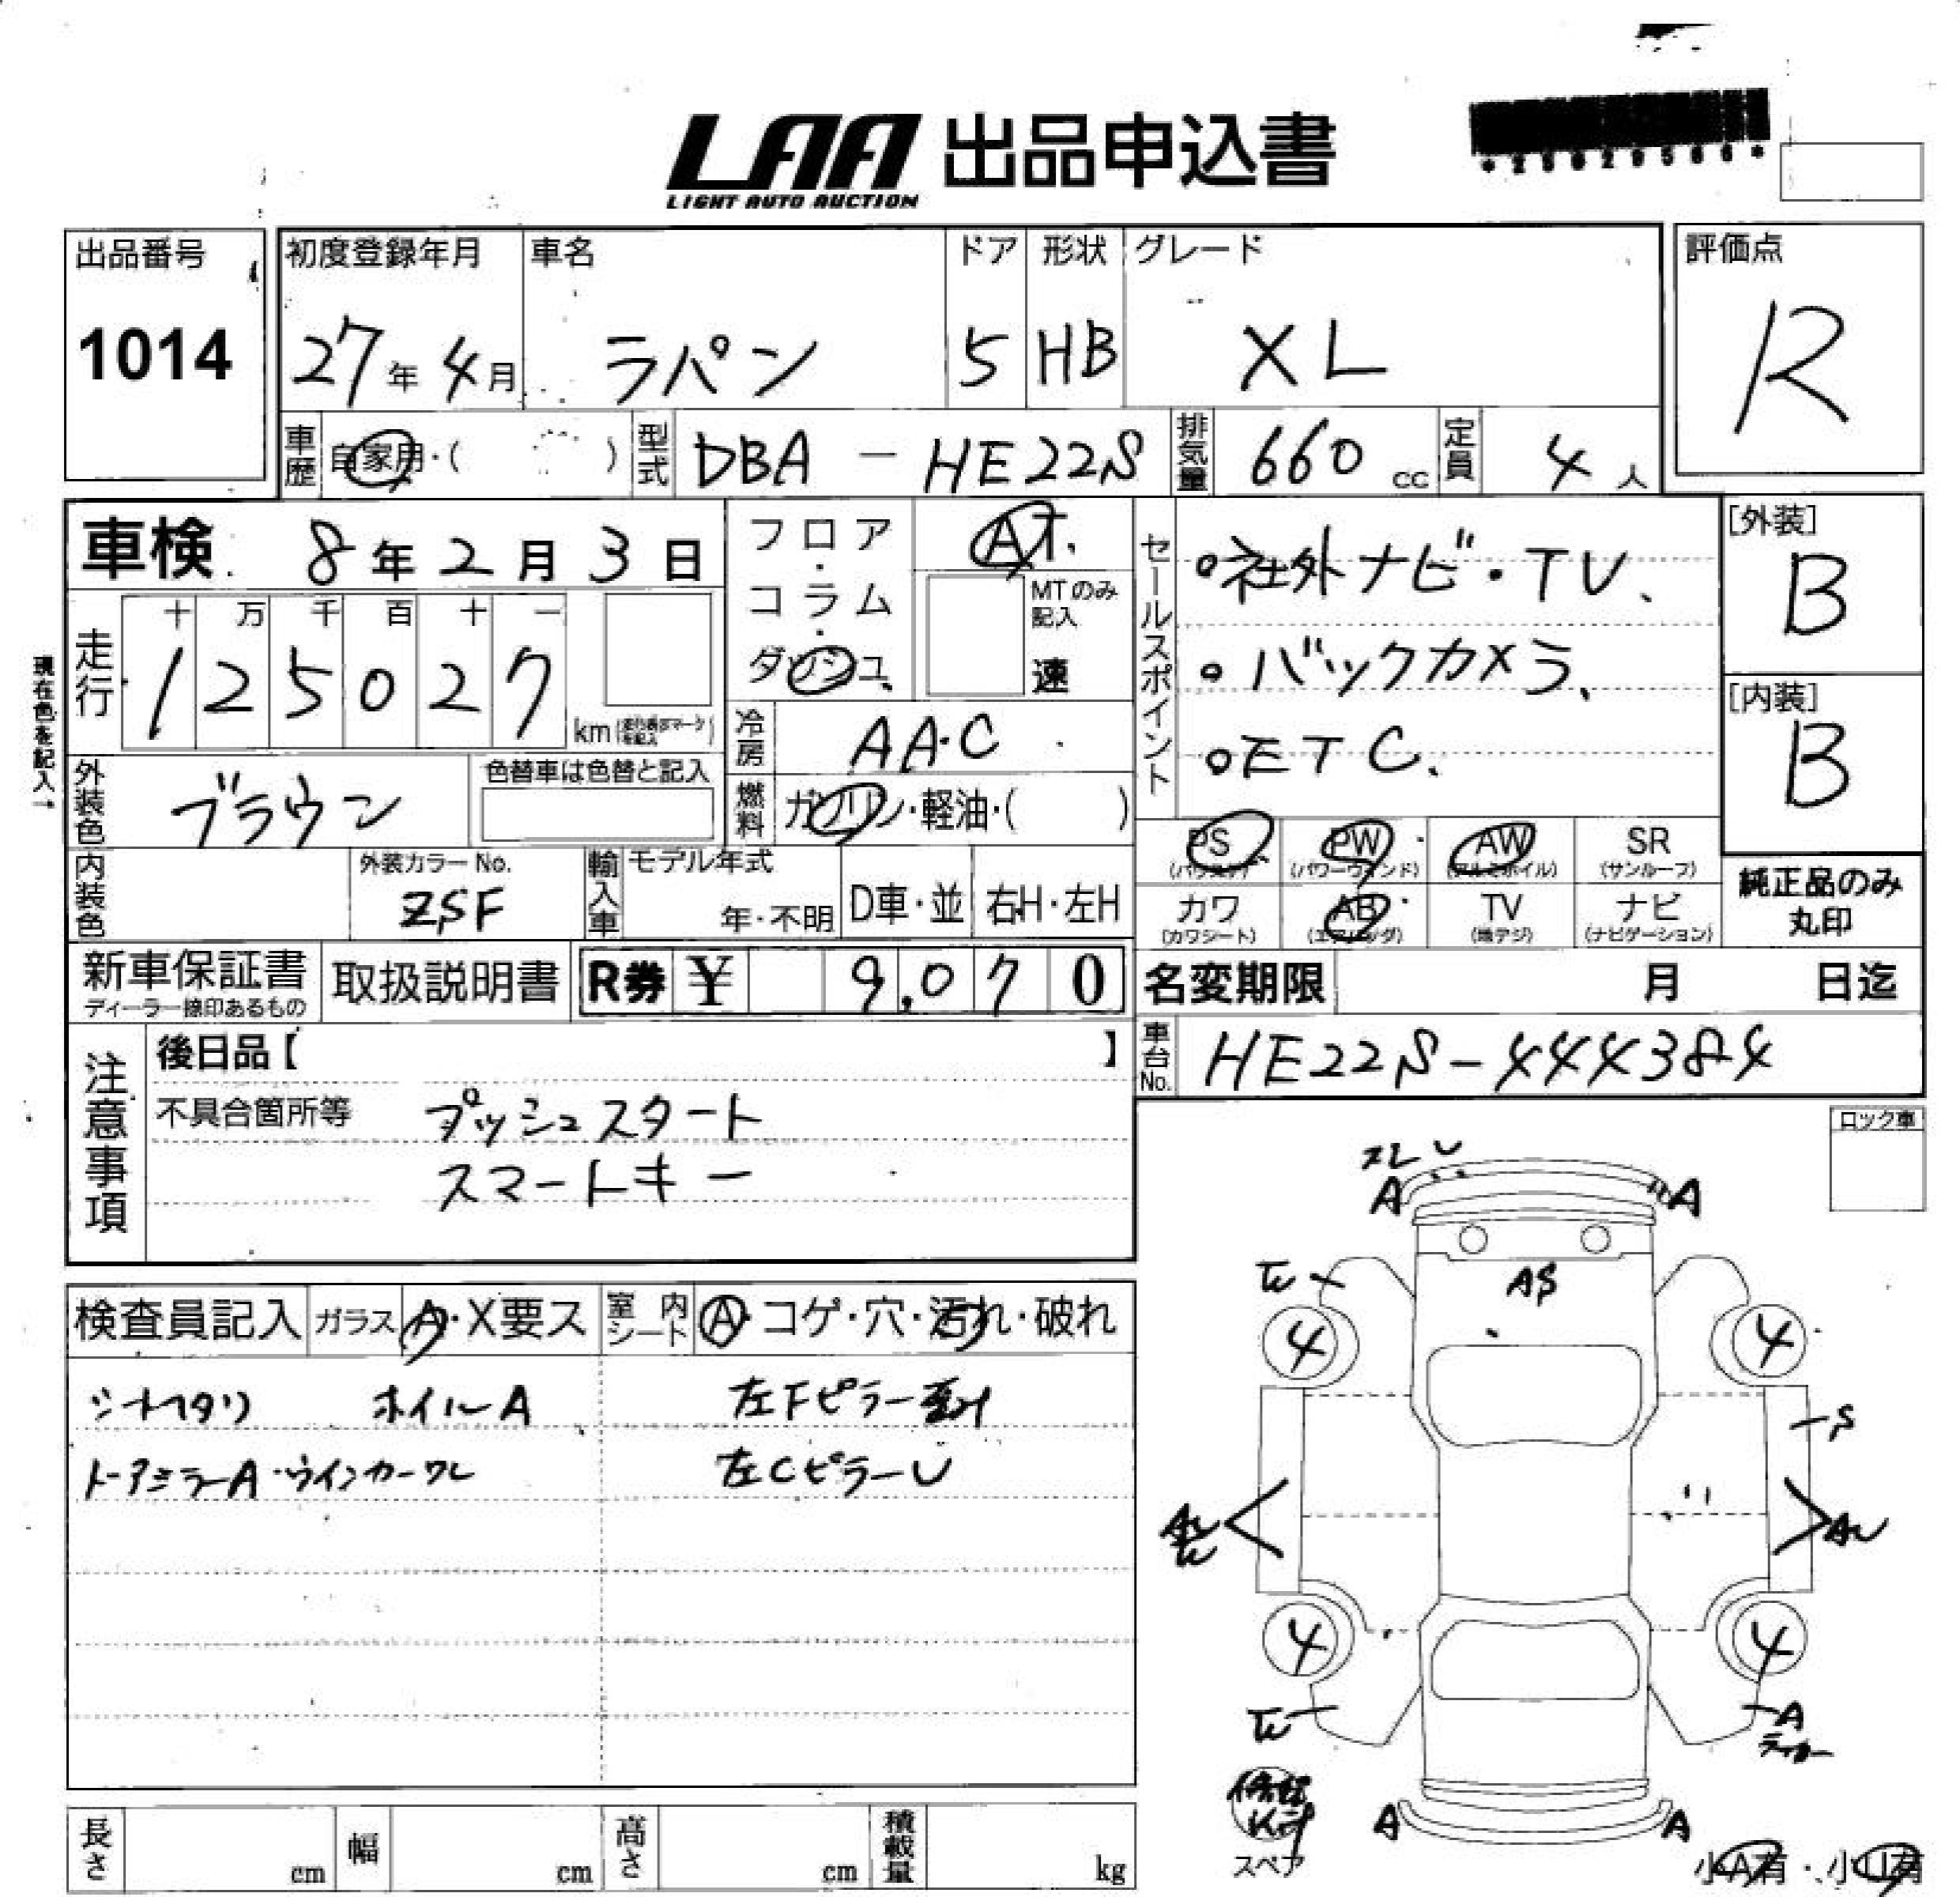 LAA 出品申込書
LIGHT AUTO AUCTION
出品番号
1014
初度登録年月
27年4月
車名
ラパン
ドア
5
形状
HB
グレード
XL
評価点
R
車歴
自家用・( )
型式
DBA - HE22S
排気量
660 cc
定員
4人
車検 8年2月3日
フロア・コラム・ダッシュ
AT.
MTのみ記入
速
セールスポイント
・社外ナビ・TV、
・バックカメラ、
・ETC、
[外装]
B
[内装]
B
現在色を記入→
走行
十 万 千 百 十 一
1 2 5 0 2 7
km
冷房
AA・C
外装色
ブラウン
色替車は色替と記入
燃料
ガソリン・軽油・( )
PS (パワステ)
PW (パワーウインド)
AW (アルミホイル)
SR (サンルーフ)
カワ (カワシート)
AB (エアバッグ)
TV (地デジ)
ナビ (ナビゲーション)
純正品のみ
丸印
内装色
外装カラーNo.
ZSF
輸入車
モデル年式
年・不明
D車・並
右H・左H
新車保証書
ディーラー捺印あるもの
取扱説明書
R券 ¥ 9,070
名変期限 月 日迄
車台No.
HE22S-444384
注意事項
後日品【 】
不具合箇所等
プッシュスタート
スマートキー
ロック車
検査員記入
ガラス A・X要ス
室内シート
A・コゲ・穴・汚れ・破れ
ホイルA
左Fピラー
ドアミラーA・ウインカーワレ
左CピラーU
U
A
A
AS
4
4
S
4
4
A
A
A
スペア
小A有・小U有
長さ cm
幅 cm
高さ cm
積載量 kg